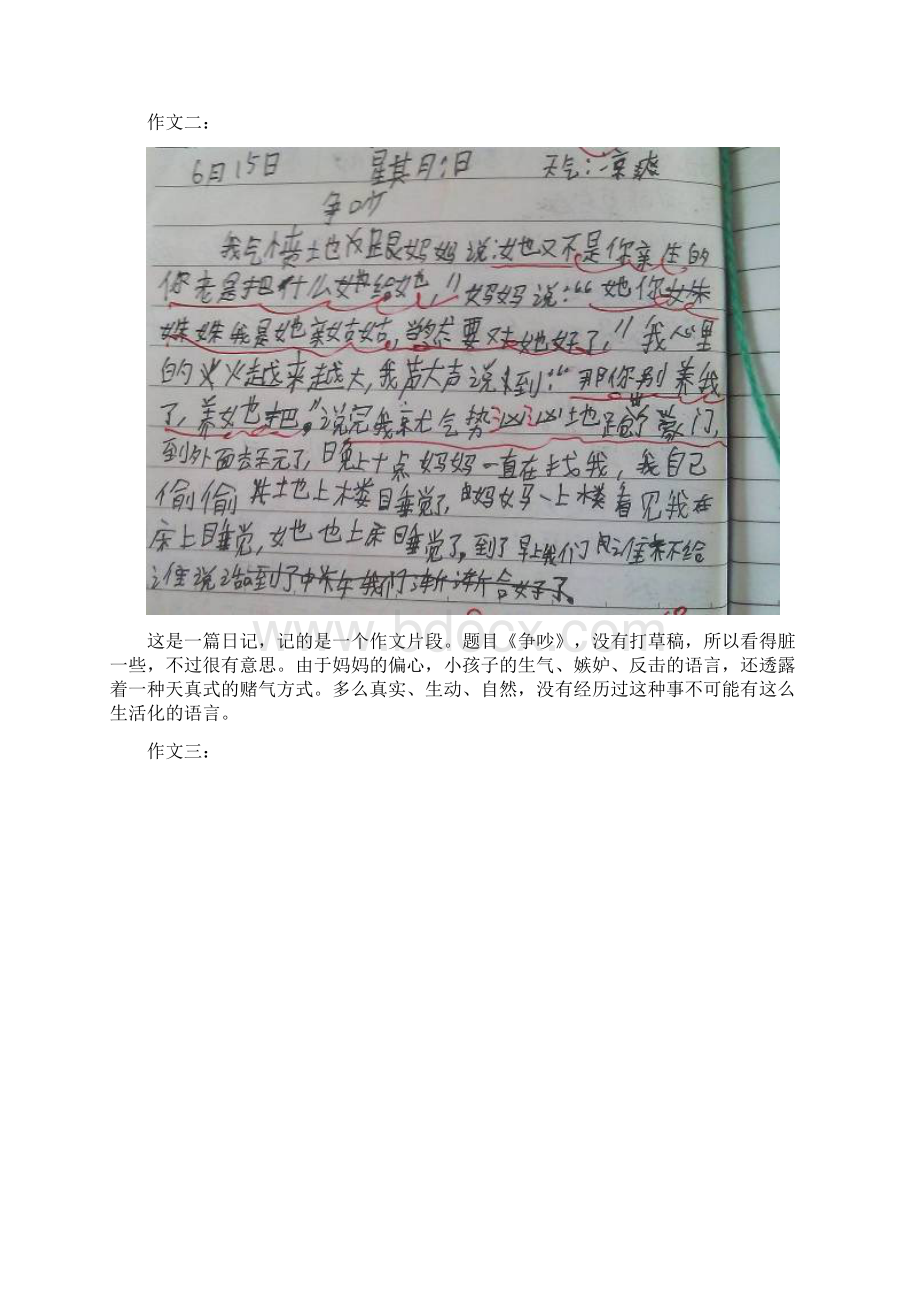 作文二：
6月15日 星其月:日 天气:凉爽
争吵
我气愤地反跟妈妈说:她又不是你亲生的
你老是把什么她给她,”妈妈说:“她你妹
妹妹我是她亲姑姑,当然要对她好了,”我心里
的火火越来越大,我声大声说到:“那你别养我
了,养她把。”说完我就气势汹汹地跑出了家门,
到外面去玩了,晚上十点妈妈一直在找我,我自己
偷偷地上楼睡觉了,妈妈一上楼看见我在
床上睡觉,她也上床睡觉了。到了早上我们谁不给
谁说话到了中午我们渐渐合好了。
www.bdocx.com
这是一篇日记，记的是一个作文片段。题目《争吵》，没有打草稿，所以看得脏
一些，不过很有意思。由于妈妈的偏心，小孩子的生气、嫉妒、反击的语言，还透露
着一种天真式的赌气方式。多么真实、生动、自然，没有经历过这种事不可能有这么
生活化的语言。
作文三：